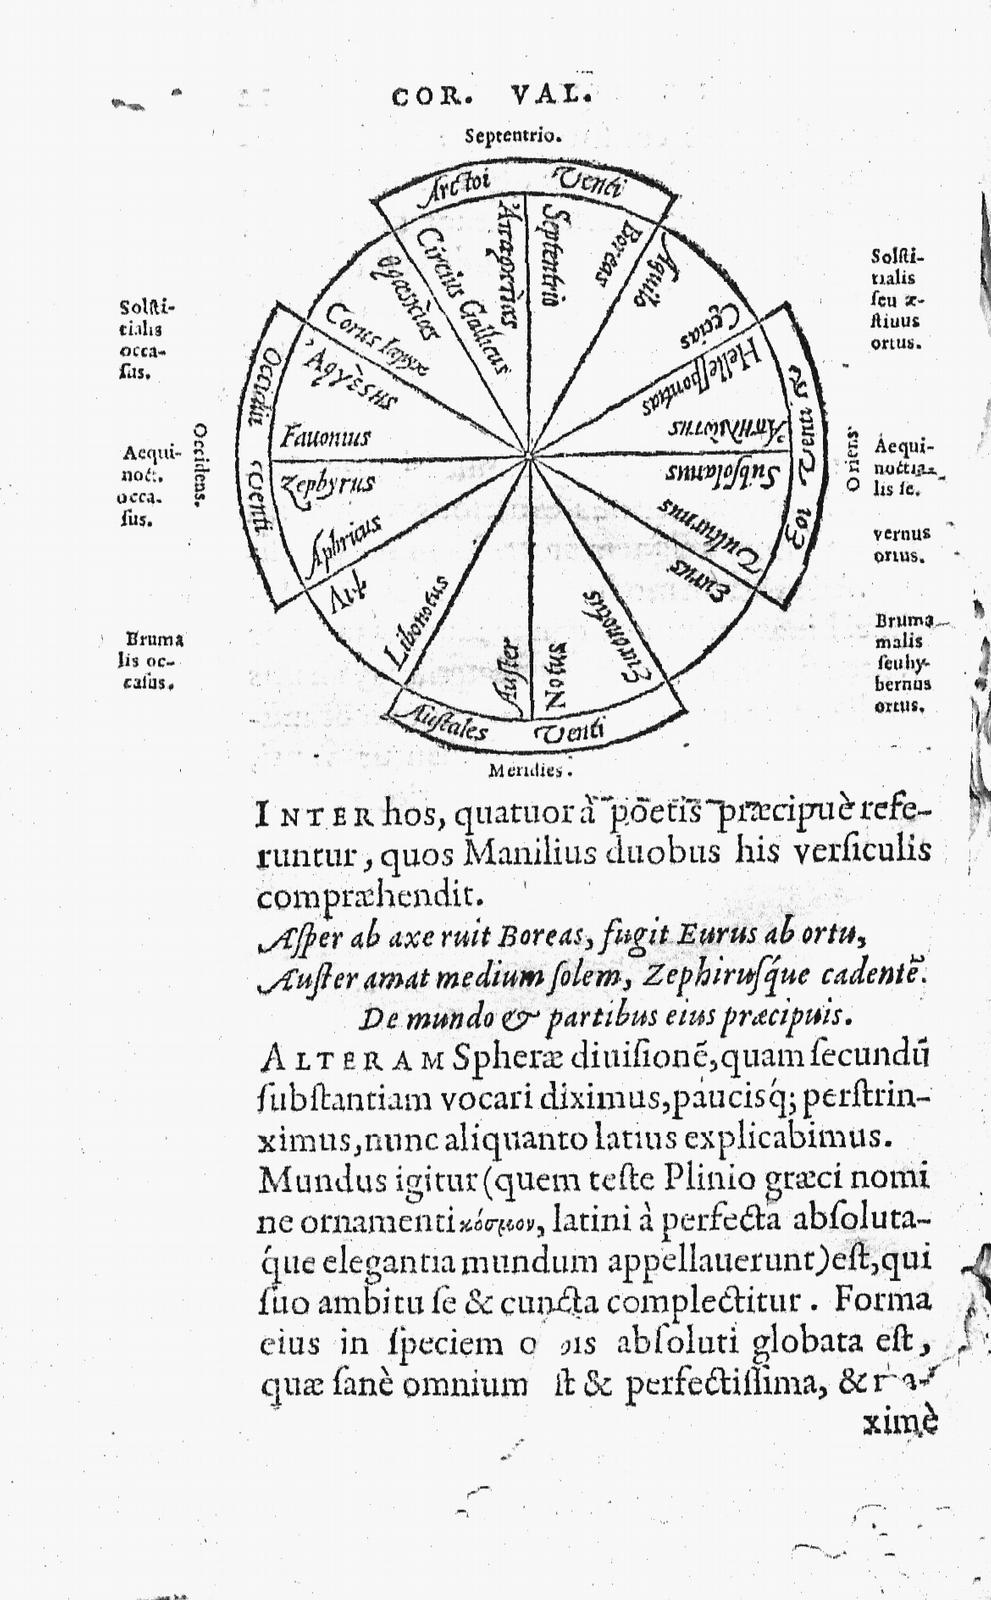 COR. VAL.
Septentrio.
Arctoi Venti
Ἀπαρκτίας
Septentrio
Boreas
Aquilo
Cecias
Hellespontias
Subsolanus
Vulturnus
Eurus
Euronotus
Notus
Auster
Libonotus
Λίψ
Aphricus
Zephyrus
Fauonius
Corus Iapyx
Circius Gallicus
Occidui Venti
Eoi Venti
Australes Venti
Solsti-
tialis
occa-
sus.
Occidens.
Aequi-
noct.
occa-
sus.
Bruma
lis oc-
casus.
Solsti-
tialis
seu æ-
stiuus
ortus.
Oriens
Aequi-
noctia-
lis se.
vernus
ortus.
Bruma
malis
seu hy-
bernus
ortus.
Meridies.
INTER hos, quatuor à poëtis præcipuè refe-
runtur, quos Manilius duobus his versiculis
compræhendit.
Asper ab axe ruit Boreas, fugit Eurus ab ortu,
Auster amat medium solem, Zephirusq́ue cadentē.
De mundo & partibus eius præcipuis.
ALTERAM Spheræ diuisionē, quam secundū
substantiam vocari diximus, paucisq́; perstrin-
ximus, nunc aliquanto latius explicabimus.
Mundus igitur (quem teste Plinio græci nomi
ne ornamenti κόσμον, latini à perfecta absoluta-
q́ue elegantia mundum appellauerunt) est, qui
suo ambitu se & cuncta complectitur. Forma
eius in speciem absoluti globata est,
quæ sanè omnium & perfectissima, &
ximè